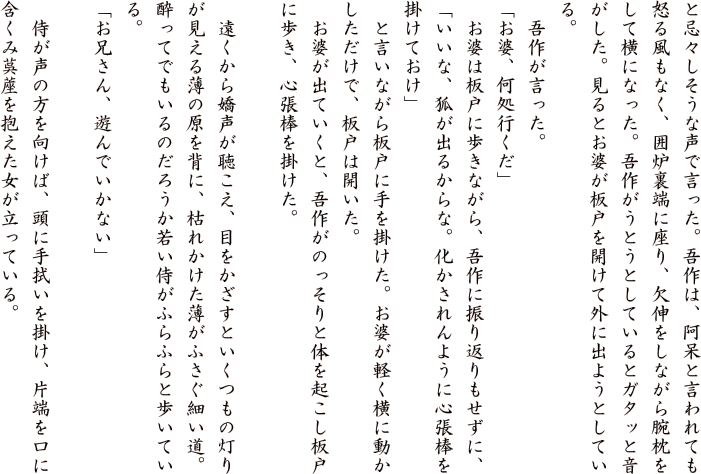 と忌々しそうな声で言った。吾作は、阿呆と言われても
怒る風もなく、囲炉裏端に座り、欠伸をしながら腕枕を
して横になった。吾作がうとうとしているとガタッと音
がした。見るとお婆が板戸を開けて外に出ようとしてい
る。
吾作が言った。
「お婆、何処行くだ」
お婆は板戸に歩きながら、吾作に振り返りもせずに、
「いいな、狐が出るからな。化かされんように心張棒を
掛けておけ」
と言いながら板戸に手を掛けた。お婆が軽く横に動か
しただけで、板戸は開いた。
お婆が出ていくと、吾作がのっそりと体を起こし板戸
に歩き、心張棒を掛けた。
遠くから嬌声が聴こえ、目をかざすといくつもの灯り
が見える薄の原を背に、枯れかけた薄がふさぐ細い道。
酔ってでもいるのだろうか若い侍がふらふらと歩いてい
る。
「お兄さん、遊んでいかない」
侍が声の方を向けば、頭に手拭いを掛け、片端を口に
含くみ茣蓙を抱えた女が立っている。